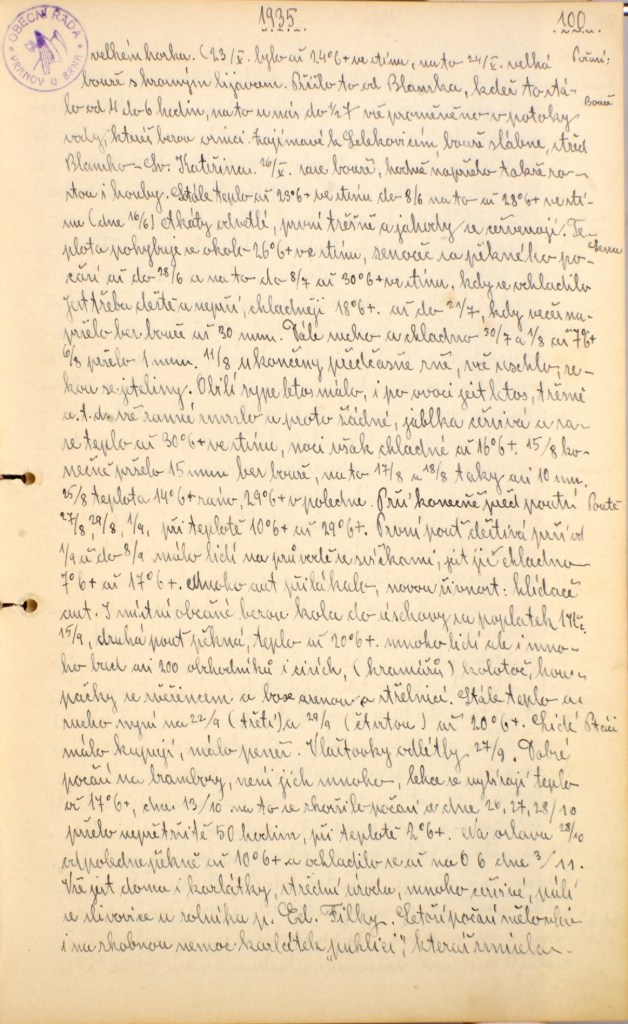 1935
100
OBECNÍ RADA VRANOV U BRNA
velkém horku. (23/V. bylo až 24°6+ ve stínu, na to 24/V. velká
Počasí:
bouře s hrozným lijavcem. Přišlo to od Blanska, kdež to stá-
lo od 4 do 6 hodin, na to u nás do ½7 vše proměněno v potoky
Bouře
vody, kteréž berou ornici. Zajímavé k Lelekovicům, bouře slábne, střed
Blansko - Sv. Kateřina. 26/V. zase bouře, hodně napršelo takže ro-
stou i houby. Stále teplo až 23°6+ ve stínu do 8/6 na to až 28°6+ ve stí-
nu (dne 16/6) Akáty odkvetlé, první třešně a jahody se červenají. Te-
plota pohybuje se okolo 26°6+ ve stínu, senoseč za pěkného po-
časí až do 28/6 a na to do 8/7 až 30°6+ ve stínu, kdy se ochladilo
Jest třeba deště a neprší, chladněji 18°6+. až do 21/7, kdy večer na-
pršelo bez bouře až 30 mm. Dále sucho a chladno 30/7 a 1/8 až 7°6+
6/8 pršelo 1 mm. 11/8 ukončeny předčasně žně, vše uschlo, se-
kou se jeteliny. Obilí sype letos málo, i po ovoci jest letos, třešně
a. t. d. vše zamrzlo a proto žádné, jablka červivá a za-
se teplo až 30°6+ ve stínu, noci však chladné až 16°6+. 15/8 ko-
nečně pršelo 15 mm bez bouře, na to 17/8 a 18/8 taky asi 10 mm.
25/8 teplota 14°6+ ráno, 29°6+ v poledne. Prší konečně před poutí
Poutě
27/8, 29/8, 1/9, při teplotě 10°6+ až 29°6+. První pouť deštivá prší od
1/9 až do 8/9 málo lidí na průvodě se svíčkami, jest již chladno
7°6+ až 17°6+. Mnoho aut přilákalo, novou živnost: hlídače
aut. I místní občané berou kola do úschovy za poplatek 1 Kč.
15/9, druhá pouť pěkná, teplo až 20°6+. mnoho lidí ale i mno-
ho bud asi 200 obchodníků i cizích, (kramářů) kolotoč, hou-
pačky se zvěřincem a box arenou a střelnicí. Stále teplo a
sucho nyní na 22/9 (třetí) a 29/9 (čtvrtou) až 20°6+. Lidé
Ptáci
málo kupují, málo peněz. Vlaštovky odlétly 27/9. Dobré
počasí na brambory, není jich mnoho, lehce se vybírají teplo
až 17°6+, dne 13/10 na to se zhoršilo počasí a dne 26, 27, 28/10
pršelo nepřetržitě 50 hodin, při teplotě 2°6+. Na oslavu 28/10
odpoledne pěkně až 10°6+ a ochladilo se až na 0 6 dne 3/11.
Vše jest doma i karlátky, střední úroda, mnoho červivé, pálí
se slivovice u rolníka p. Ed. Filky. Letoší počasí mělo vliv
i na zhoubnou nemoc karlátek „puchlici", kteráž zmizela.-